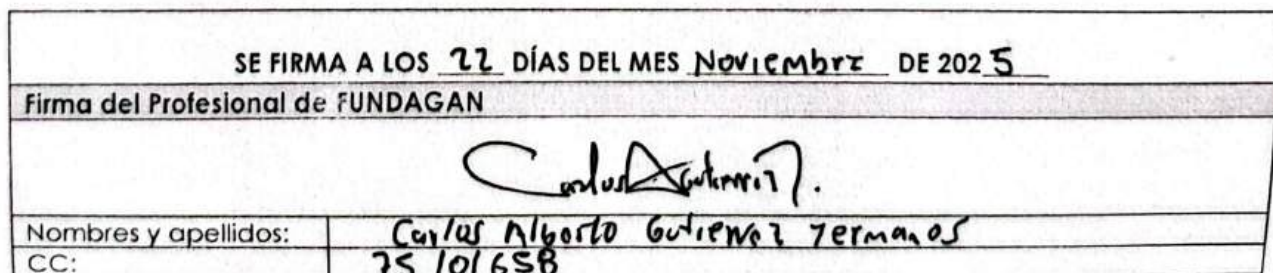 SE FIRMA A LOS 22 DÍAS DEL MES Noviembre DE 2025
Firma del Profesional de FUNDAGAN
Carlos A Gutierrez
Nombres y apellidos: Carlos Alberto Gutierrez Yermanos
CC: 75 101 658